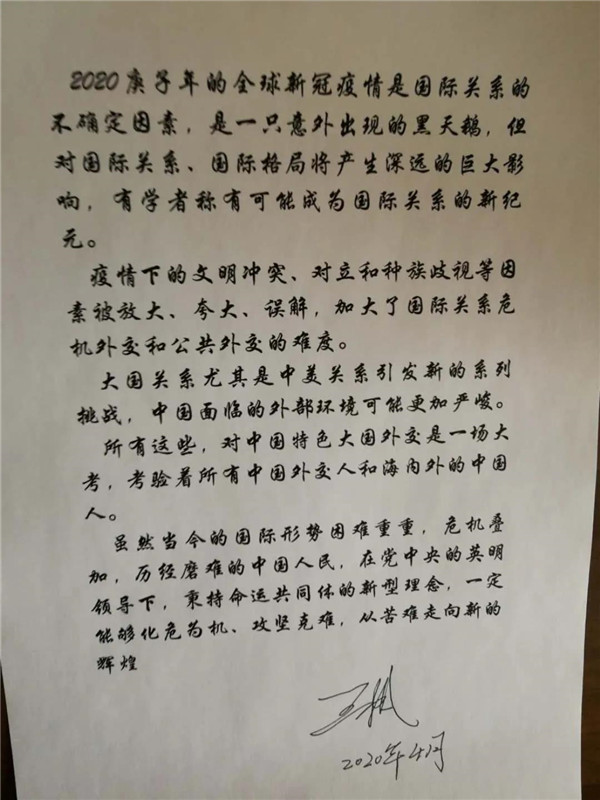 2020庚子年的全球新冠疫情是国际关系的
不确定因素，是一只意外出现的黑天鹅，但
对国际关系、国际格局将产生深远的巨大影
响，有学者称有可能成为国际关系的新纪
元。
疫情下的文明冲突、对立和种族歧视等因
素被放大、夸大、误解，加大了国际关系危
机外交和公共外交的难度。
大国关系尤其是中美关系引发新的系列
挑战，中国面临的外部环境可能更加严峻。
所有这些，对中国特色大国外交是一场大
考，考验着所有中国外交人和海内外的中国
人。
虽然当今的国际形势困难重重，危机叠
加，历经磨难的中国人民，在党中央的英明
领导下，秉持命运共同体的新型理念，一定
能够化危为机、攻坚克难，从苦难走向新的
辉煌
2020年4月